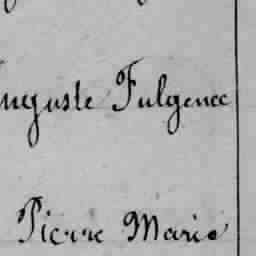 Auguste Fulgence
Pierre Marie